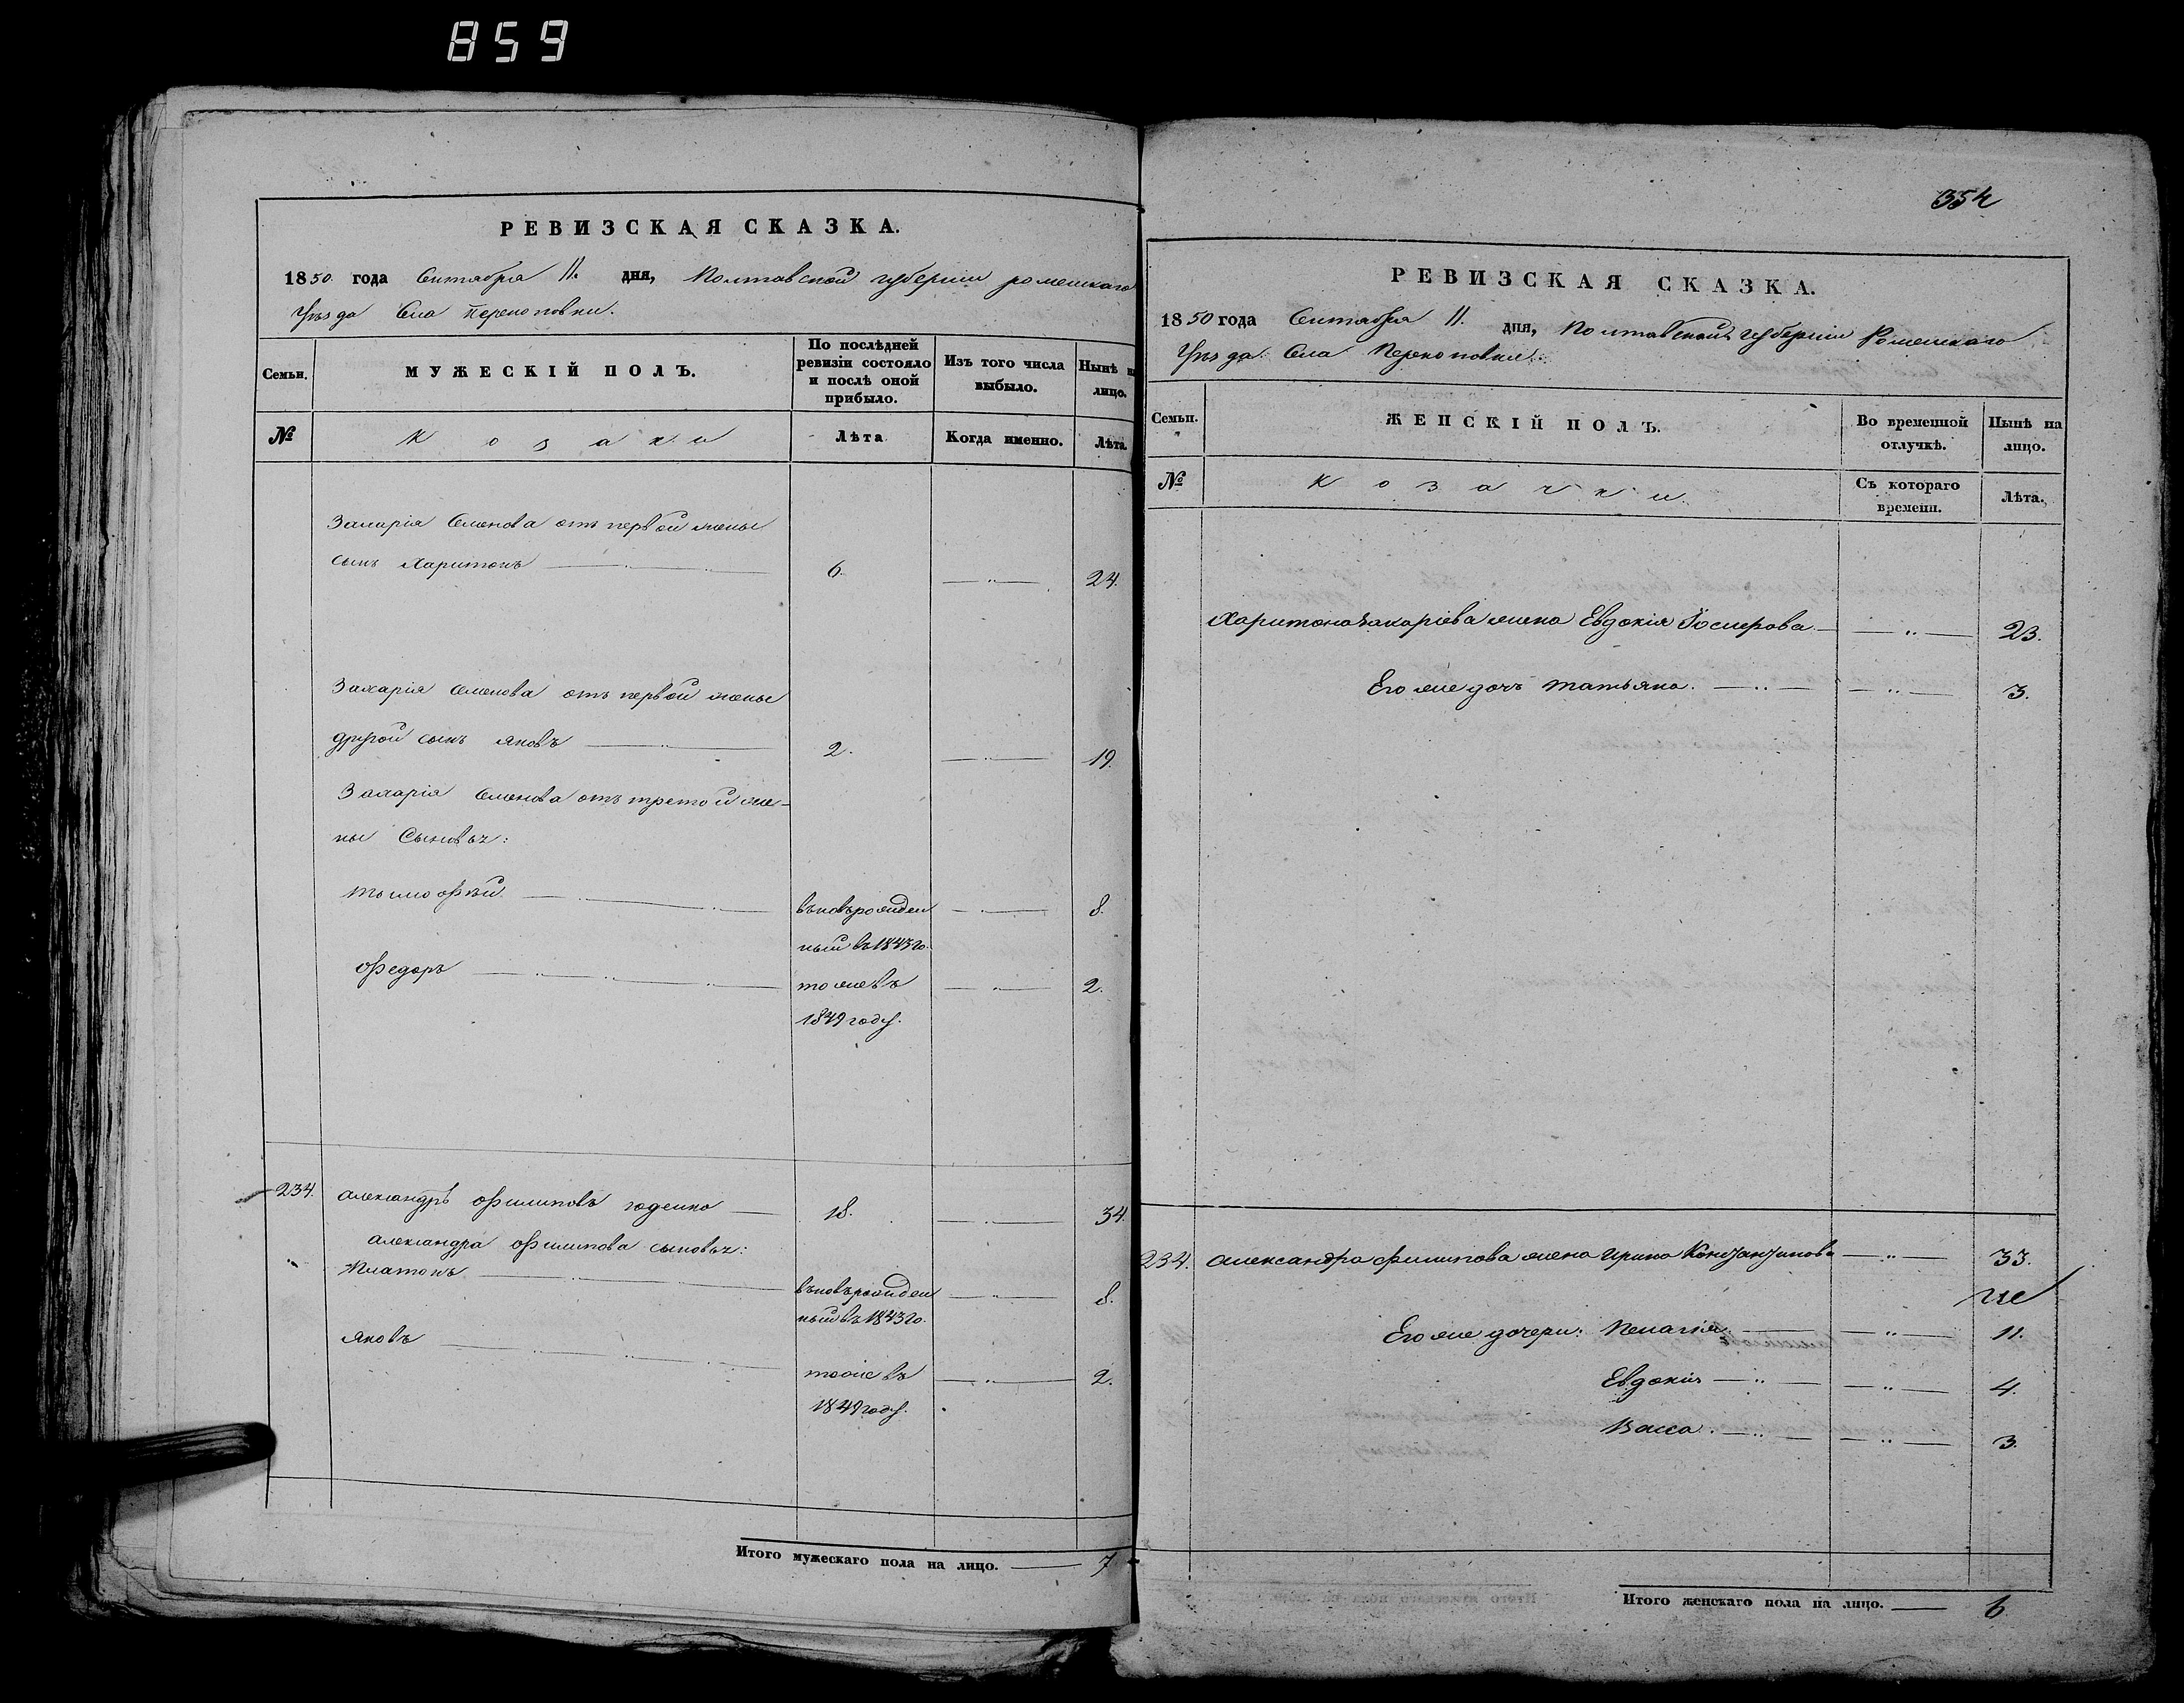 859
РЕВИЗСКАЯ СКАЗКА.
1850. года Сентября 11. дня, Полтавской губернии роменскаго
Уѣзда Села Перекоповки.
Семьи.
МУЖЕСКІЙ ПОЛЪ.
По послѣдней
ревизіи состояло
и послѣ оной
прибыло.
Изъ того числа
выбыло.
Нынѣ н
лицо.
№
Козаки
Лѣта
Когда именно.
Лѣта.
Захарія Семенова отъ первой жены
сынъ Харитонъ 6. 24.
Захарія Семенова отъ первой жены
другой сынъ Яковъ 2. 19.
Захарія Семенова отъ третой же-
ны Сыновья:
Тымофѣй. въновърожден 8.
ный въ 1843 го.
Федоръ тожевъ 2.
1849 году.
234. Александръ Филиповъ 18. 34.
Александра Филипова сыновья:
Платонъ въновърожден 8.
ный въ 1843 го.
Яковъ тоже въ 2.
1849 году.
Итого мужескаго пола на лицо. 7
354
РЕВИЗСКАЯ СКАЗКА.
1850 года Сентября 11. дня, Полтавской губерніи Роменскаго
Уѣзда Села Перекоповки.
Семьи.
ЖЕНСКІЙ ПОЛЪ.
Во временной
отлучкѣ.
Нынѣ на
лицо.
№
Козачки.
Съ котораго
времени.
Лѣта.
Харитона Захаріева жена Евдокія 23.
Его же дочь Татьяна. 3.
234. Александра Филипова жена Ирина Константинова 33.
Его же дочери: Пелагія 11.
Евдокія 4.
Васса. 3.
Итого женскаго пола на лицо. 6